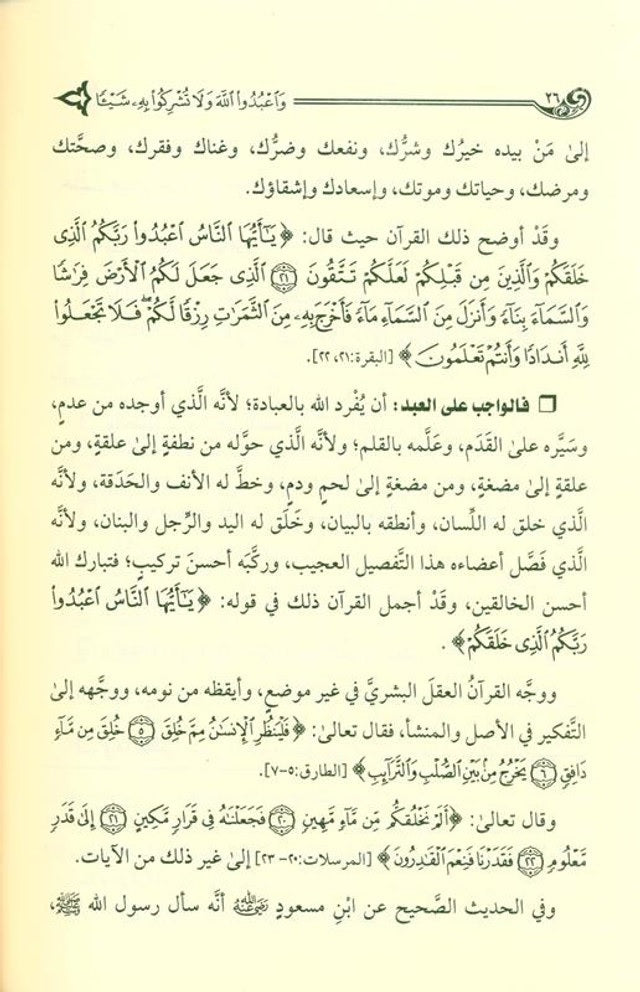 ٢٦ وَاعْبُدُوا اللَّهَ وَلَا تُشْرِكُوا بِهِ شَيْئًا
إلىٰ مَنْ بيده خيرُك وشرُّك، ونفعك وضرُّك، وغناك وفقرك، وصحَّتك
ومرضك، وحياتك وموتك، وإسعادك وإشقاؤك.
وقَدْ أوضح ذلك القرآن حيث قال: ﴿يَٰٓأَيُّهَا ٱلنَّاسُ ٱعْبُدُوا۟ رَبَّكُمُ ٱلَّذِى
خَلَقَكُمْ وَٱلَّذِينَ مِن قَبْلِكُمْ لَعَلَّكُمْ تَتَّقُونَ ٢١ ٱلَّذِى جَعَلَ لَكُمُ ٱلْأَرْضَ فِرَٰشًا
وَٱلسَّمَآءَ بِنَآءً وَأَنزَلَ مِنَ ٱلسَّمَآءِ مَآءً فَأَخْرَجَ بِهِۦ مِنَ ٱلثَّمَرَٰتِ رِزْقًا لَّكُمْ ۖ فَلَا تَجْعَلُوا۟
لِلَّهِ أَندَادًا وَأَنتُمْ تَعْلَمُونَ﴾ [البقرة:٢١، ٢٢].
❒ فالواجب على العبد: أن يُفْرد الله بالعبادة؛ لأنه الَّذي أوجده من عدمٍ،
وسَيَّره علىٰ القَدَم، وعَلَّمه بالقلم؛ ولأنَّه الَّذي حوَّله من نطفةٍ إلىٰ علقةٍ، ومن
علقةٍ إلىٰ مضغةٍ، ومن مضغةٍ إلىٰ لحمٍ ودمٍ، وخطَّ له الأنف والحَدَقة، ولأنَّه
الَّذي خلق له اللِّسان، وأنطقه بالبيان، وخَلَق له اليد والرِّجل والبنان، ولأنَّه
الَّذي فَصَّل أعضاءه هذا التَّفصيل العجيب، وركَّبَه أحسنَ تركيبٍ؛ فتبارك الله
أحسن الخالقين، وقَدْ أجمل القرآن ذلك في قوله: ﴿يَٰٓأَيُّهَا ٱلنَّاسُ ٱعْبُدُوا۟
رَبَّكُمُ ٱلَّذِى خَلَقَكُمْ﴾.
ووجَّه القرآنُ العقلَ البشريَّ في غير موضعٍ، وأيقظه من نومه، ووجَّهه إلىٰ
التَّفكير في الأصل والمنشأ، فقال تعالىٰ: ﴿فَلْيَنظُرِ ٱلْإِنسَٰنُ مِمَّ خُلِقَ ٥ خُلِقَ مِن مَّآءٍ
دَافِقٍ ٦ يَخْرُجُ مِنۢ بَيْنِ ٱلصُّلْبِ وَٱلتَّرَآئِبِ﴾ [الطارق:٥-٧].
وقال تعالىٰ: ﴿أَلَمْ نَخْلُقكُّم مِّن مَّآءٍ مَّهِينٍ ٢٠ فَجَعَلْنَٰهُ فِى قَرَارٍ مَّكِينٍ ٢١ إِلَىٰ قَدَرٍ
مَّعْلُومٍ ٢٢ فَقَدَرْنَا فَنِعْمَ ٱلْقَٰدِرُونَ﴾ [المرسلات:٢٠-٢٣] إلىٰ غير ذلك من الآيات.
وفي الحديث الصَّحيح عن ابْنِ مسعودٍ رَضِيَ اللهُ عَنْهُ أنَّه سأل رسول الله ﷺ،